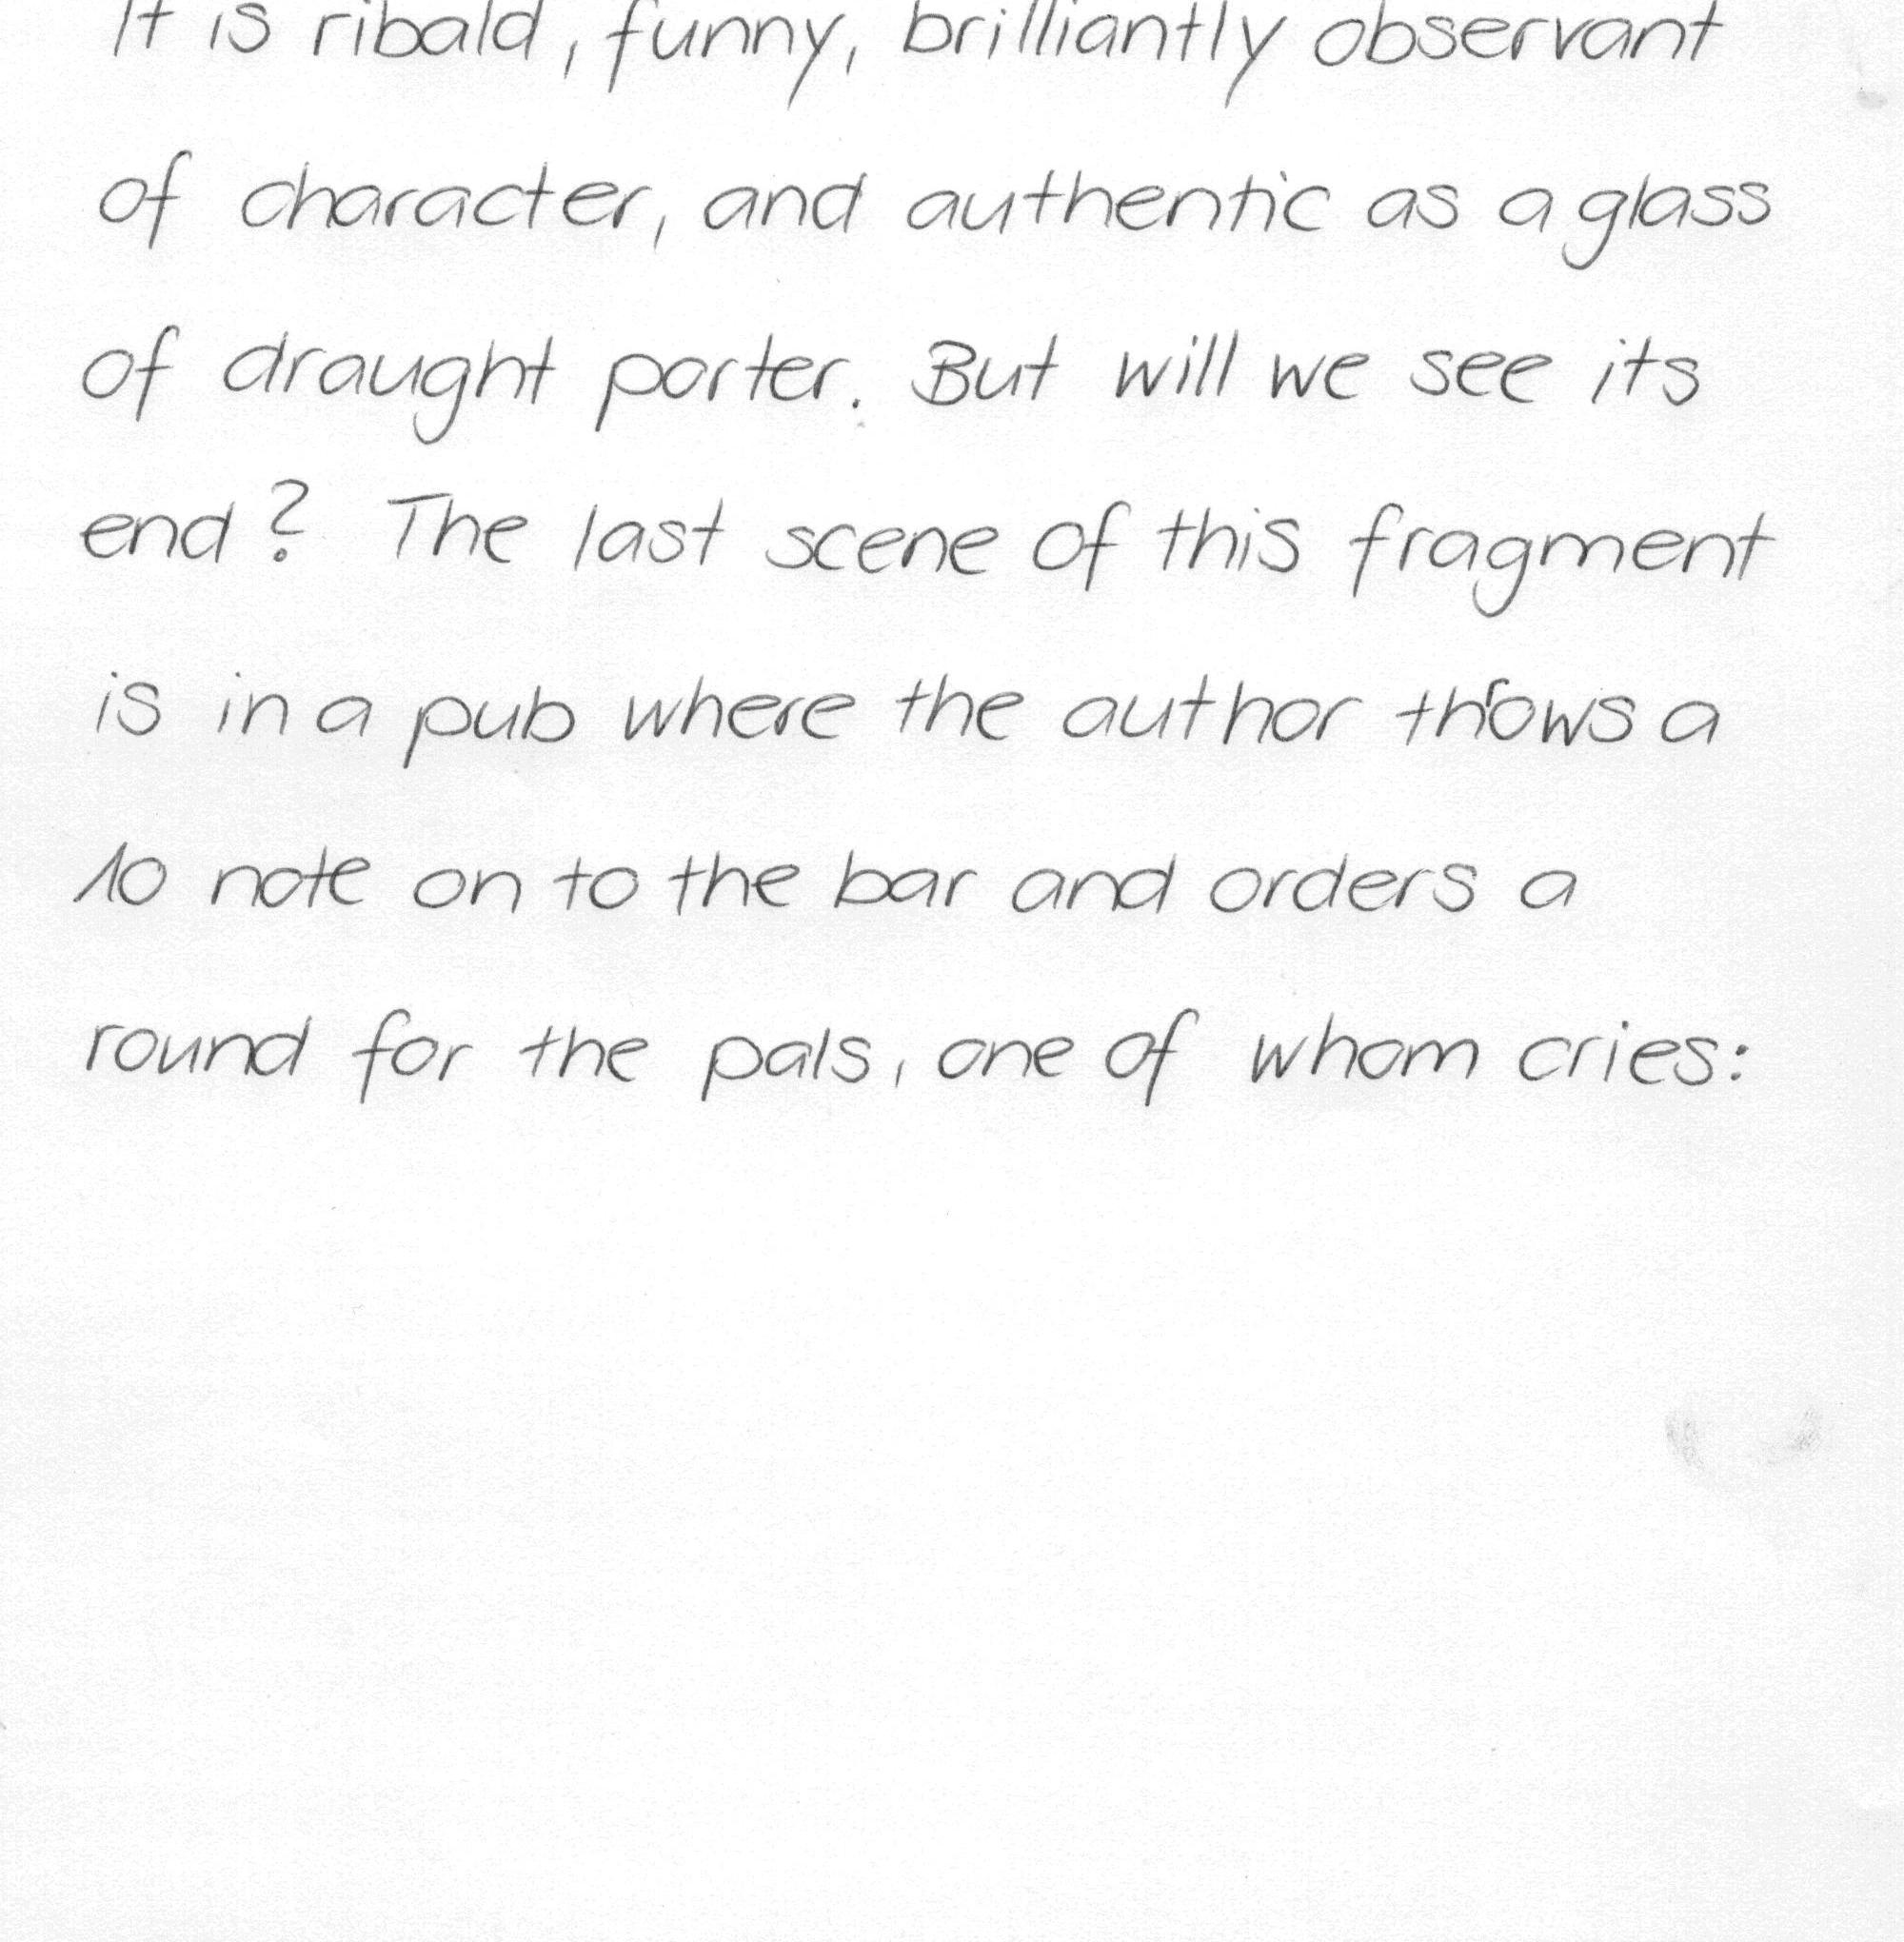 It is ribald, funny, brilliantly observant
of character, and authentic as a glass
of draught porter. But will we see its
end? The last scene of this fragment
is in a pub where the author throws a
10 note on to the bar and orders a
round for the pals, one of whom cries: